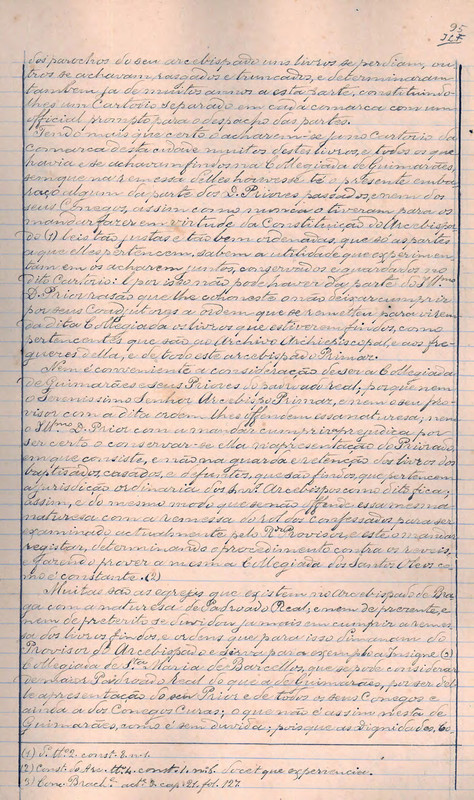 95
dos parochos do seu arcebispado uns livros se perdiam, ou
tros se achavam rasgados e truncados, e determinaram
tambem ja de muitos annos a esta parte, constituindo-
lhes um Cartorio separado em cada comarca com um
official prompto para o despacho das partes.
Sendo mais que certo o acharem-se ja no Cartorio da
comarca desta cidade muitos destes livros, e todos os que
havia e se acharem findos na Collegiada de Guimarães,
sem que na remessa delles houvesse té o presente emba
raço algum da parte dos D. Priores passados, nem dos
seus Conegos, assim como nunca o tiveram para os
mandar fazer em virtude da Constituição do Arcebispa
do (1) leis tão justas e tão bem ordenadas, que só as partes
a que elles pertencem, sabem a utilidade que experimen
tam em os acharem juntos, conservados e guardados no
dito Cartorio: e por isso não pode haver da parte do Ill.mo
D. Prior rasão que lhe cohoneste o não deixar cumprir
por seus Coadjutores a ordem que se remetteu para virem
da dita Collegiada os livros que estiverem findos, como
pertencentes que são ao Archivo Archiepiscopal, e aos fre-
guezes della, e de todo este arcebispado Primaz.
Nem é conveniente a consideração de ser a Collegiada
de Guimarães e seus Priores do padroado real, porque nem
o Serenissimo Senhor Arcebispo Primaz, e nem o seu Pro-
visor com a dita ordem lhes offendem essa naturesa, nem
o Ill.mo D. Prior com a mandar cumprir o prejudica por
ser certo o conservar-se ella na apresentação do Priorado,
em que consiste, e não na guarda e retenção dos livros dos
baptisados, casados, e defuntos, que são findos, que pertencem
a jurisdição ordinaria dos Snrs. Arcebispos como dito fica;
assim, e do mesmo modo que se não offende essa mesma
naturesa com a remessa do rol dos confessados, para ser
examinado actualmente pelo R.do Provisor, e este o mandar
registar, determinando o procedimento contra os reveis,
e fazendo prover a mesma Collegiada dos Santos Oleos co
mo é constante. (2)
Muitas são as egrejas que existem no Arcebispado de Bra
ga com a naturesa de Padroado Real; e nem de presente, e
nem de preterito se duvidou jamais em cumprir a remes
sa dos livros findos, e ordens que para isso dimanam do
Provisor do Arcebispado e sirva para exemplo a Insigne (3)
Collegiada de S.ta Maria de Barcellos, que se pode considerar
de maior Padroado Real do que a de Guimarães, por ser del
le a apresentação do seu Prior e de todos os seus Conegos e
ainda a dos Conegos Curas; o que não é assim nesta de
Guimarães, como é sem duvida; pois que as Dignidades, Co,
(2) Const. do Arc. tt.º 4. const. 1. n. 6. docet que experiencia.